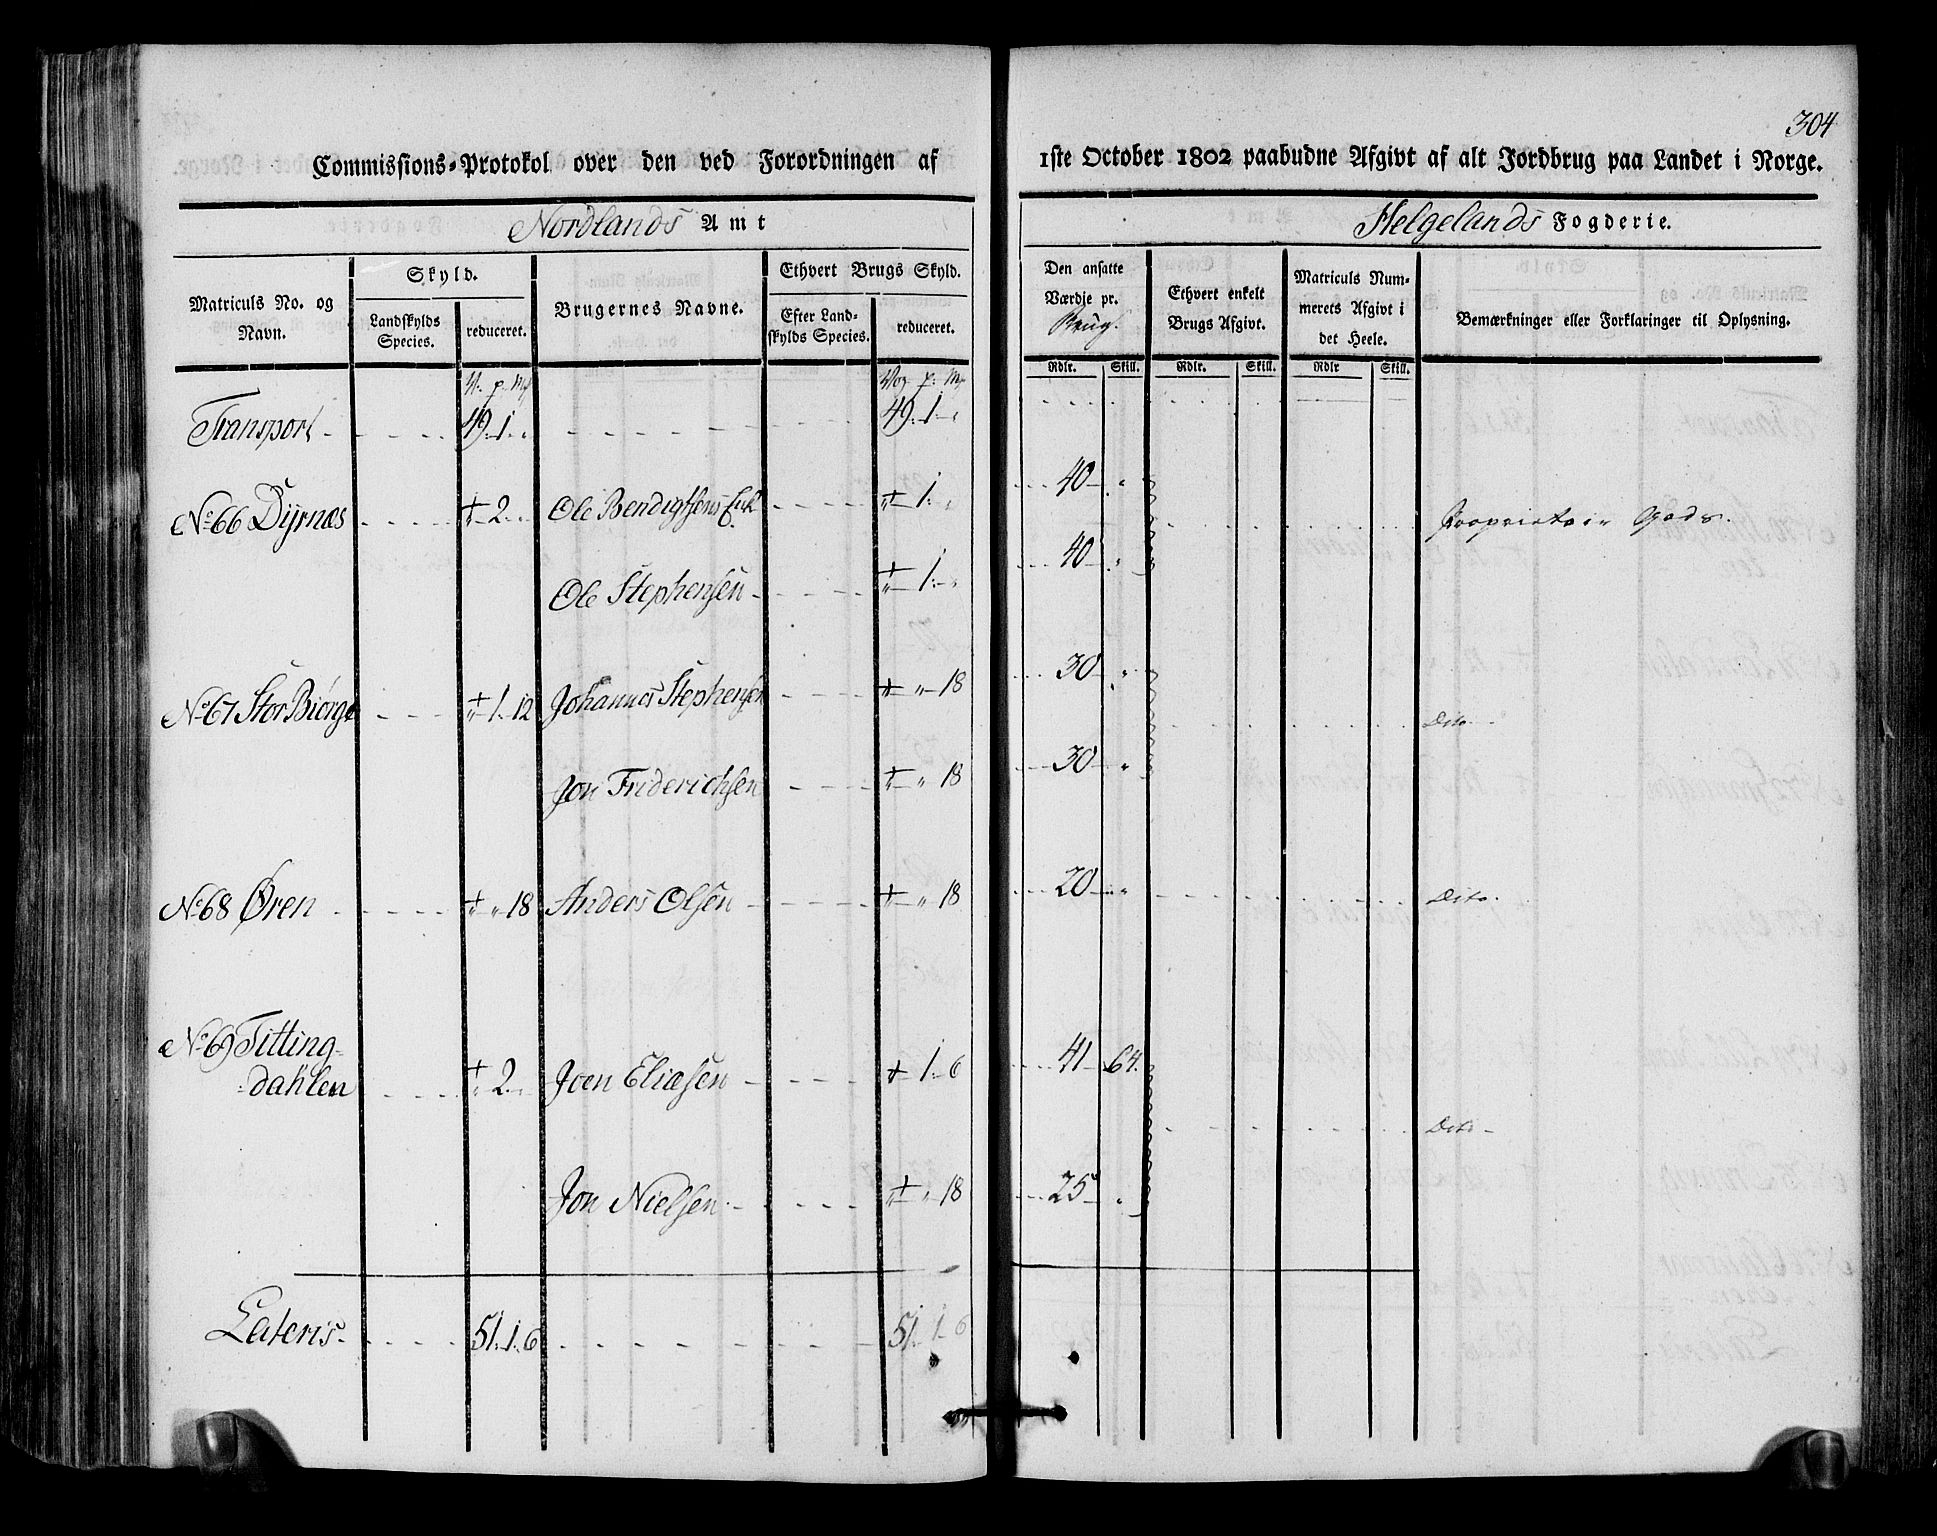 304
Commissions-Protokol over den ved Forordningen af 1ste October 1802 paabudne Afgivt af alt Jordbrug paa Landet i Norge.
Nordlands Amt Helgelands Fogderie.
Matriculs No. og Navn.
Skyld.
Landskylds Species.
reduceret.
Brugernes Navne.
Ethvert Brugs Skyld.
Efter Landskylds Species.
reduceret.
Den ansatte Værdje pr. Brug.
Ethvert enkelt Brugs Afgivt.
Matriculs Nummerets Afgivt i det Heele.
Bemærkninger eller Forklaringer til Oplysning.
Rdlr. Skill. Rdlr. Skill. Rdlr Skill.
V. p. Mk Vog p. Mk
Transport 49. 1. " 49. 1. "
No 66 Dyrnæs " 2 " Ole Bendigtsens Enk " 1 " 40 " Proprietair Gods.
Ole Stephensen " 1 " 40 "
No 67 Stor Biørge " 1 12 Johannes Stephensen " " 18 30 " Dito
Jon Friderichsen " " 18 30 "
No 68 Øren " " 18 Anders Olsen " " 18 20 " Dito.
No 69 Titting-
dahlen " 2 " Joen Eliæsen " 1 6 41 64. Dito
Jon Nielsen " " 18 25 "
Lateris 51. 1. 6 51. 1. 6